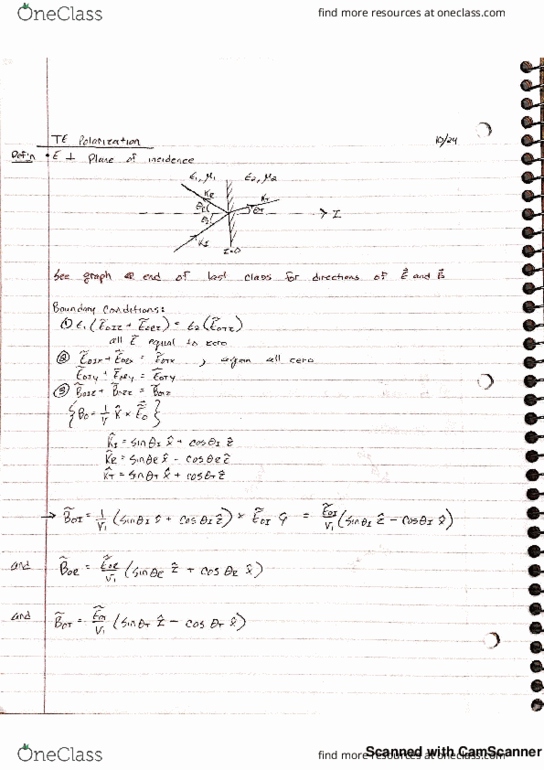 OneClass
find more resources at oneclass.com
TE Polarization
10/24
Def'n • E ⊥ Plane of incidence
ε₁, μ₁ ε₂, μ₂
K_R K_T
θ_R θ_T
θ_I
→ Z
K_I
z=0
See graph @ end of last class for directions of E⃗ and B⃗
Boundary Conditions:
① ε₁ (Ẽ₀Iz + Ẽ₀Rz) = ε₂ (Ẽ₀Tz)
all Ẽ equal to zero
② Ẽ₀Ix + Ẽ₀Rx = Ẽ₀Tx , again all zero
Ẽ₀Iy + Ẽ₀Ry = Ẽ₀Ty
③ B̃₀Iz + B̃₀Rz = B̃₀Tz
{ B̃₀ = 1/v K̂ × Ẽ₀ }
K̂_I = sinθ_I x̂ + cosθ_I ẑ
K̂_R = sinθ_R x̂ - cosθ_R ẑ
K̂_T = sinθ_T x̂ + cosθ_T ẑ
→ B̃₀I = 1/v₁ (sinθ_I x̂ + cosθ_I ẑ) × Ẽ₀I ŷ = Ẽ₀I/v₁ (sinθ_I ẑ - cosθ_I x̂)
and B̃₀R = Ẽ₀R/v₁ (sinθ_R ẑ + cos θ_R x̂)
and B̃₀T = (sinθ_T ẑ - cos θ_T x̂)
Scanned with CamScanner
OneClass
find more resources at oneclass.com